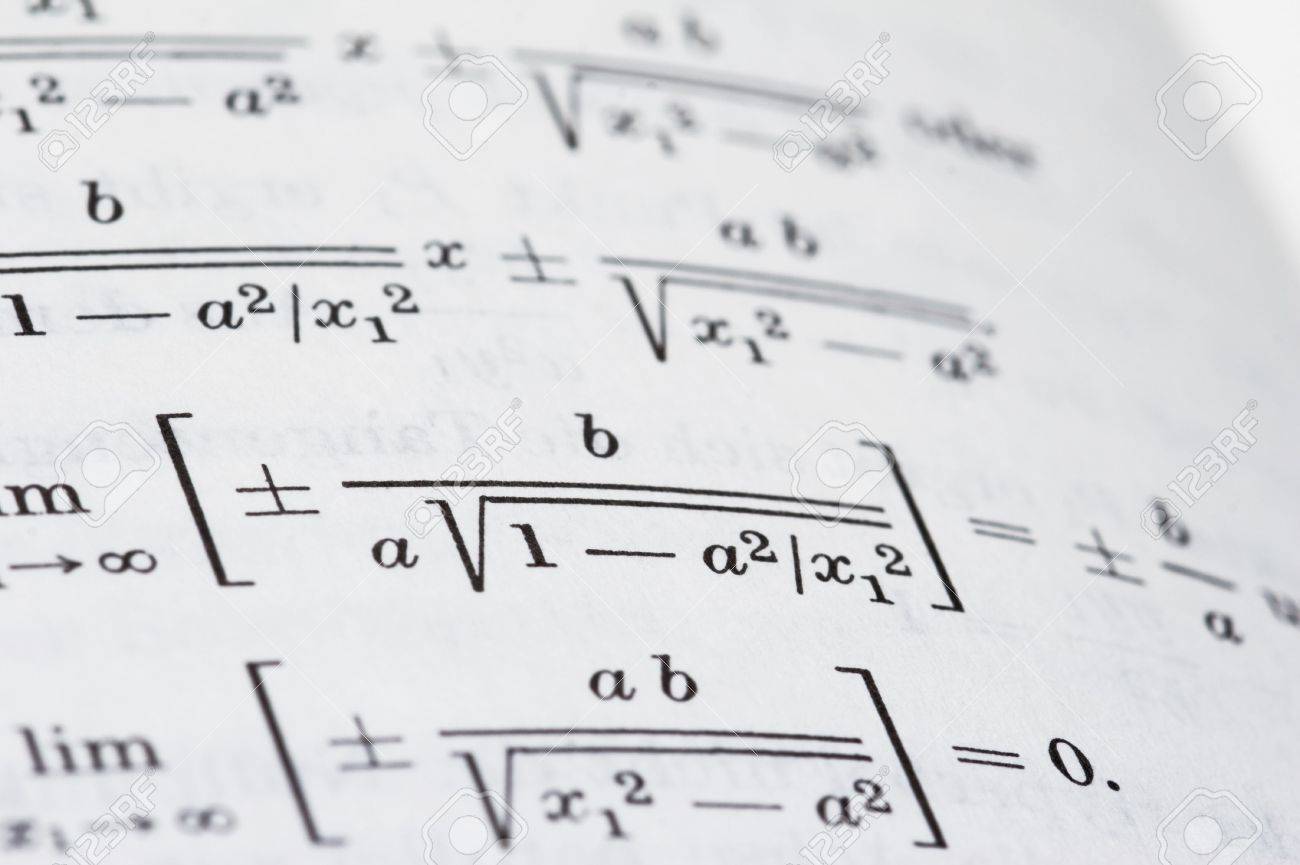 x₁
x₁² — a² x ± a b / √x₁² — a² oder
b / 1 — a²|x₁² x ± a b / √x₁² — a²
m → ∞ [± b / a√1 — a²|x₁²] = ± b / a u
lim x₁ → ∞ [± a b / √x₁² — a²] = 0.
123RF